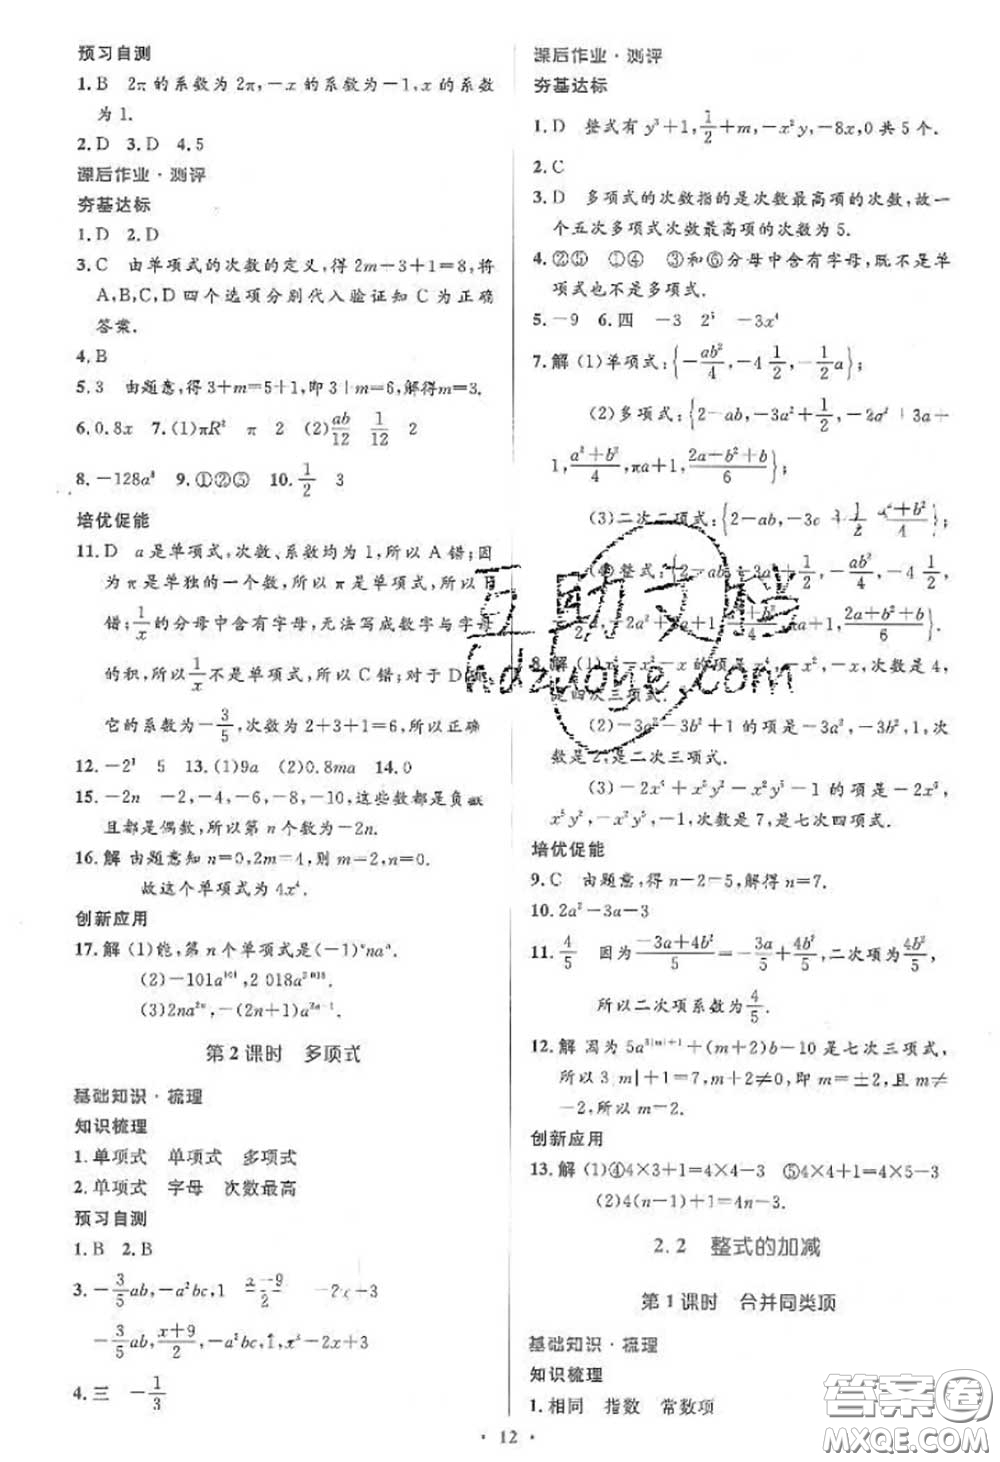 预习自测
1.B 2π的系数为2π,-x的系数为-1,x的系数
为1.
2.D 3.D 4.5
课后作业·测评
夯基达标
1.D 2.D
3.C 由单项式的次数的定义,得2m-3+1=8,将
A,B,C,D四个选项分别代入验证知C为正确
答案.
4.B
5.3 由题意,得3+m=5+1,即3+m=6,解得m=3.
6.0.8x 7.(1)πR² π 2 (2)ab/12 1/12 2
8.-128a⁸ 9.①②⑤ 10.1/2 3
培优促能
11.D a是单项式,次数、系数均为1,所以A错;因
为π是单独的一个数,所以π是单项式,所以B
错;1/x的分母中含有字母,无法写成数字与字母
的积,所以1/x不是单项式,所以C错;对于D,
它的系数为-3/5,次数为2+3+1=6,所以正确
12. 5 13.(1)9a (2)0.8ma 14.0
15.-2n -2,-4,-6,-8,-10,这些数都是负数
且都是偶数,所以第n个数为-2n.
16.解 由题意知n=0,2m=4,则m=2,n=0.
故这个单项式为4x⁴.
创新应用
17.解 (1)能,第n个单项式是(-1)ⁿnaⁿ.
(2)-101a¹⁰¹,2 018a²⁰¹⁸.
(3)2na²ⁿ,-(2n+1)a
第2课时 多项式
基础知识·梳理
知识梳理
1.单项式 单项式 多项式
2.单项式 字母 次数最高
预习自测
1.B 2.B
3.-3/5ab,-a²bc,1
-3/5ab,(x+9)/2,-a²bc,1,x³-2x+3
4.三 -1/3
课后作业·测评
夯基达标
1.D 整式有y³+1,1/2+m,-x²y,-8x,0共5个.
2.C
3.D 多项式的次数指的是次数最高项的次数,故一
个五次多项式次数最高项的次数为5.
4.②⑤ ①④ ③和⑥分母中含有字母,既不是单
项式也不是多项式.
5.-9 6.四 -3 2⁵ -3x⁴
7.解 (1)单项式:{-ab²/4,-4 1/2,-1/2a};
(2)多项式:{2-ab,-3a²+1/2,-2a²+3a+
1,(a²+b²)/4,πa+1,(2a+b²+b)/6};
(3)二次二项式:{2-ab,
(4)整式:{2-ab,-3a²+1/2,-ab²/4,-4 1/2,
-2a²+3a+1, (2a+b²+b)/6}.
8.解 (1)x⁴-x²-x的项是x⁴,-x²,-x,次数是4,
是四次三项式.
(2)-3a²-3b²+1的项是-3a²,-3b²,1,次
数是2,是二次三项式.
(3)-2x⁶+x⁵y²-x²y⁵-1的项是-2x⁶,
x⁵y²,-x²y⁵,-1,次数是7,是七次四项式.
培优促能
9.C 由题意,得n-2=5,解得n=7.
10.2a²-3a-3
11.4/5 因为(-3a+4b²)/5=-3a/5+4b²/5,二次项为4b²/5,
所以二次项系数为4/5.
12.解 因为5a^(3|m|+1)+(m+2)b-10是七次三项式,
所以3|m|+1=7,m+2≠0,即m=±2,且m≠
-2,所以m=2.
创新应用
13.解 (1)④4×3+1=4×4-3 ⑤4×4+1=4×5-3
(2)4(n-1)+1=4n-3
2.2 整式的加减
第1课时 合并同类项
基础知识·梳理
知识梳理
1.相同 指数 常数项
· 12 ·
互助文档
hdzuone.com
答案圈
MXQE.COM